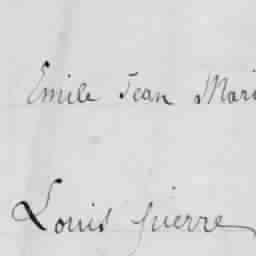 Emile Jean Mari
Louis Pierre